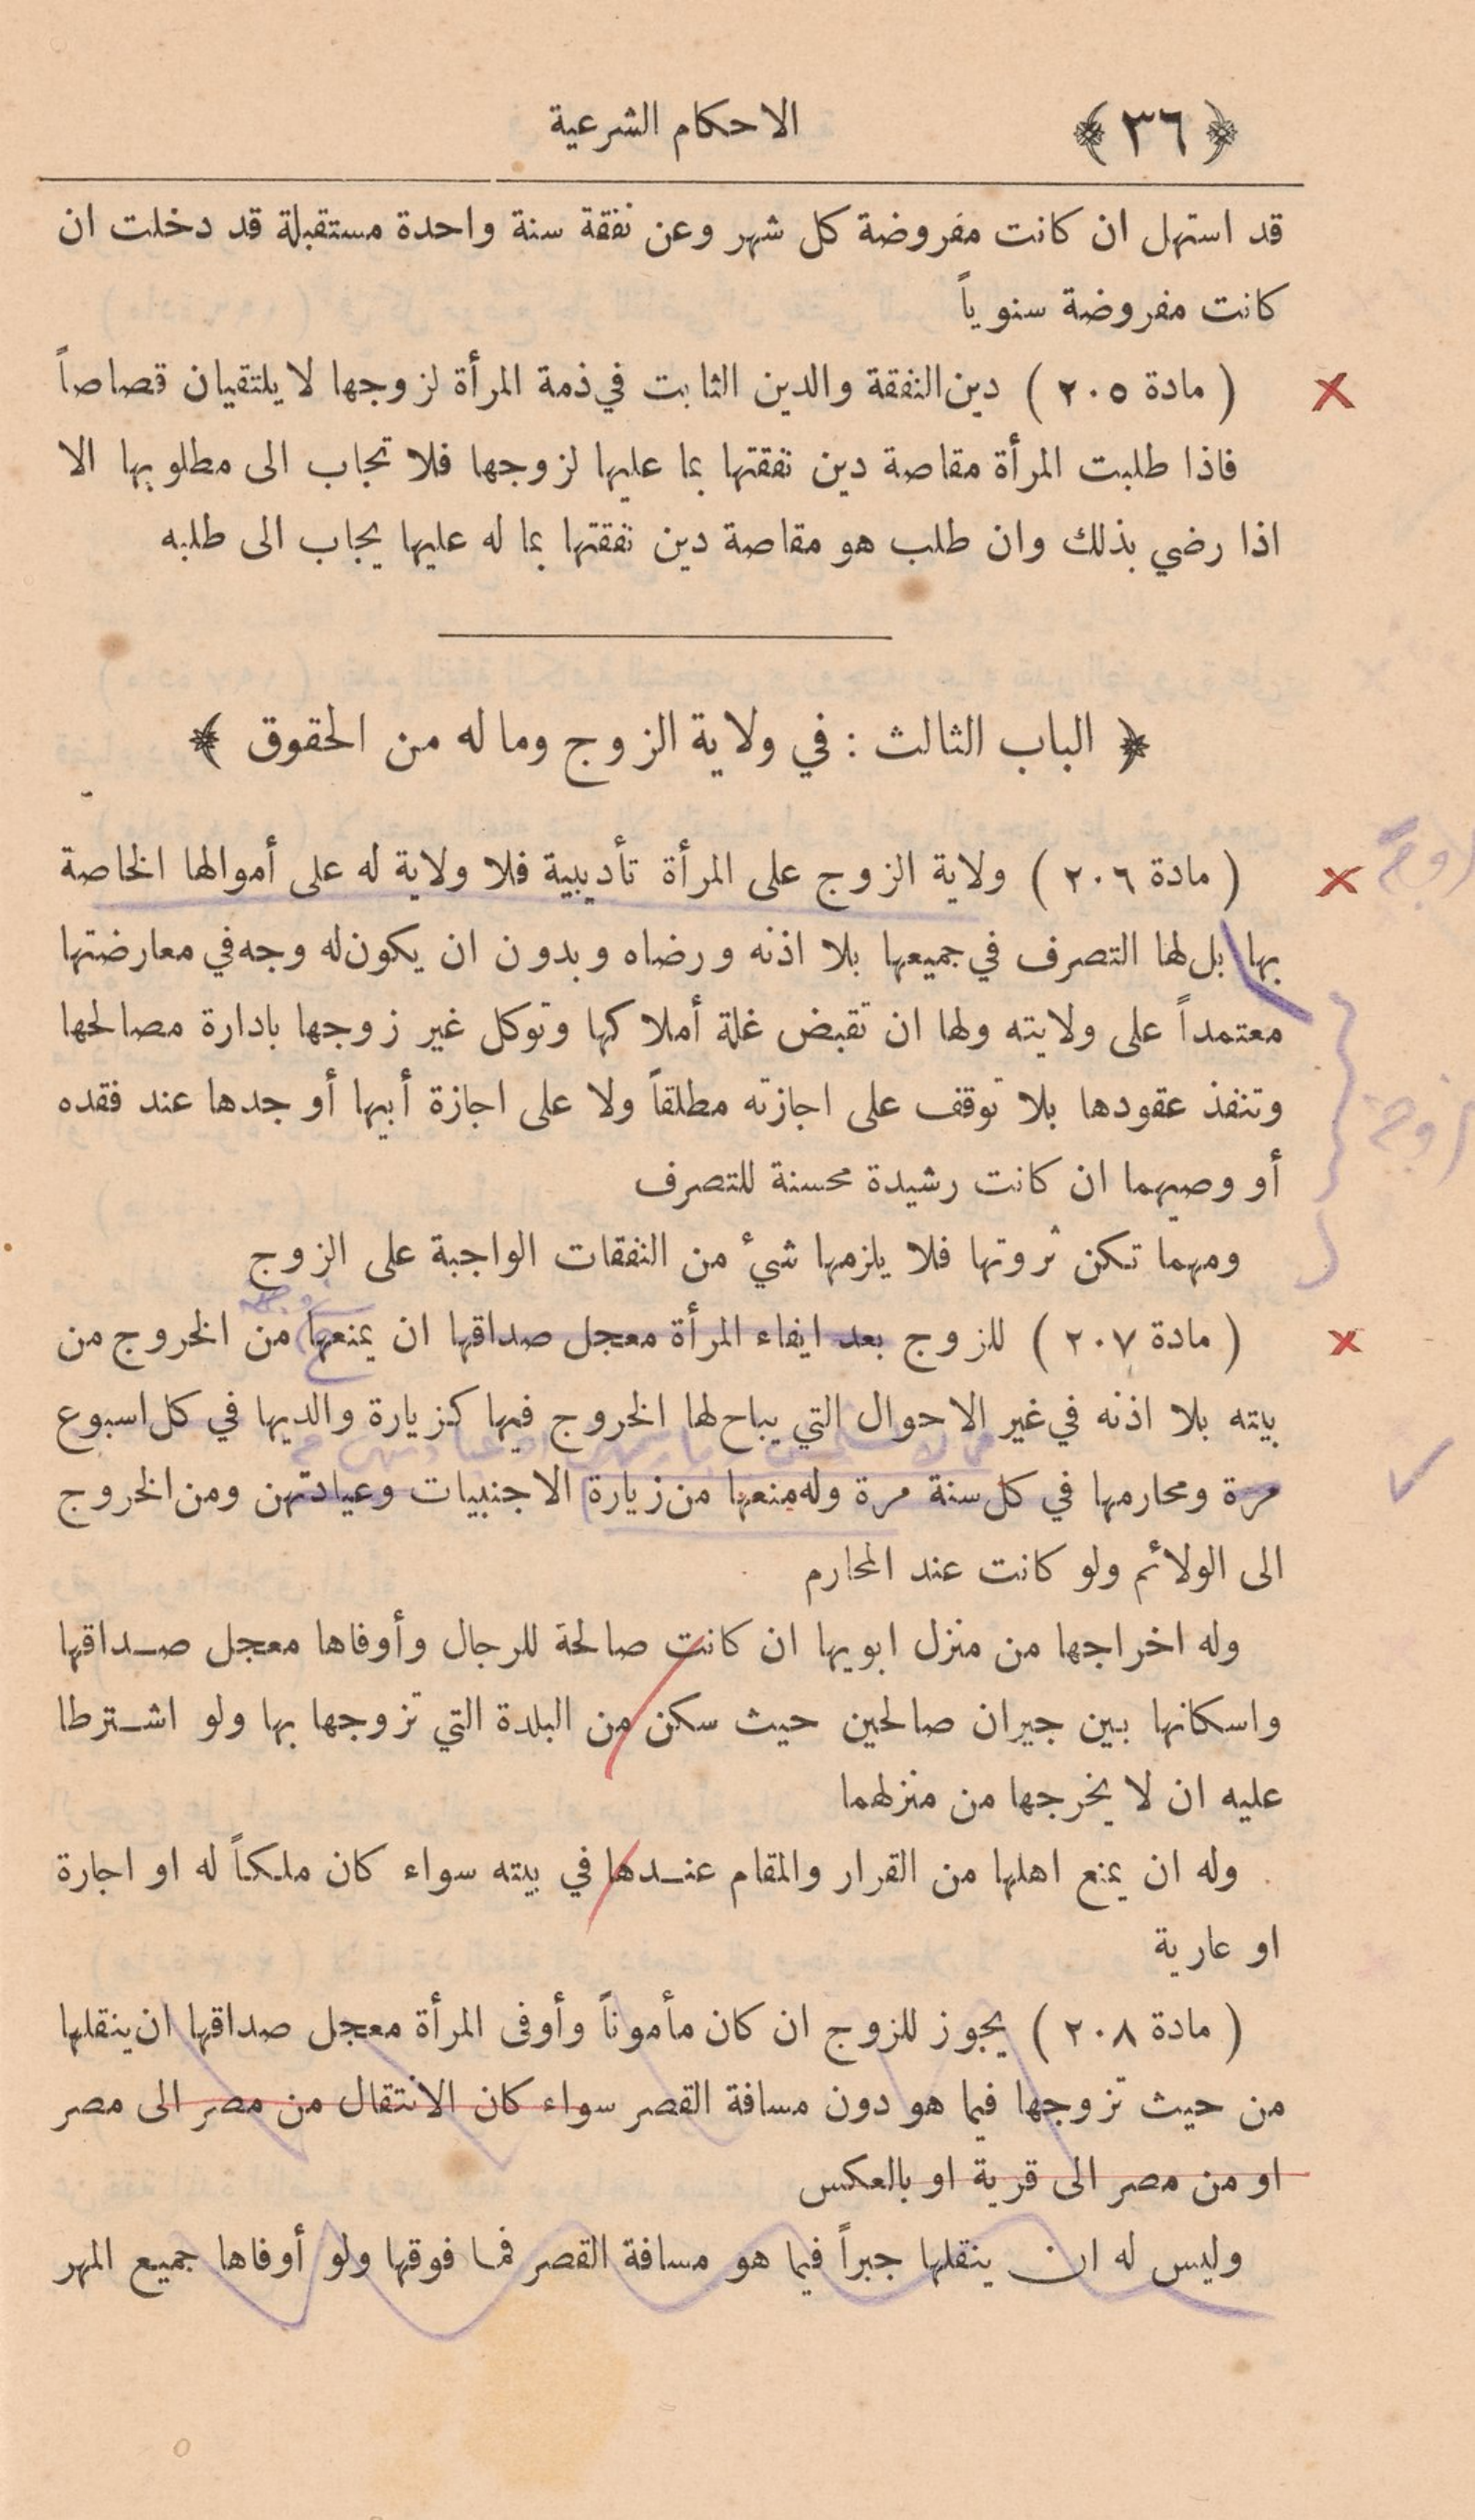 ﴿ ٣٦ ﴾ الاحكام الشرعية
قد استهل ان كانت مفروضة كل شهر وعن نفقة سنة واحدة مستقبلة قد دخلت ان
كانت مفروضة سنوياً
( مادة ٢٠٥ ) دين النفقة والدين الثابت في ذمة المرأة لزوجها لا يلتقيان قصاصاً
فاذا طلبت المرأة مقاصة دين نفقتها بما عليها لزوجها فلا تجاب الى مطلوبها الا
اذا رضي بذلك وان طلب هو مقاصة دين نفقتها بما له عليها يجاب الى طلبه
﴿ الباب الثالث : في ولاية الزوج وما له من الحقوق ﴾
( مادة ٢٠٦ ) ولاية الزوج على المرأة تأديبية فلا ولاية له على أموالها الخاصة
بها بل لها التصرف في جميعها بلا اذنه ورضاه وبدون ان يكون له وجه في معارضتها
معتمداً على ولايته ولها ان تقبض غلة أملاكها وتوكل غير زوجها بادارة مصالحها
وتنفذ عقودها بلا توقف على اجازته مطلقاً ولا على اجازة أبيها أو جدها عند فقده
أو وصيهما ان كانت رشيدة محسنة للتصرف
ومهما تكن ثروتها فلا يلزمها شيء من النفقات الواجبة على الزوج
( مادة ٢٠٧ ) للزوج بعد ايفاء المرأة معجل صداقها ان يمنعها من الخروج من
بيته بلا اذنه في غير الاحوال التي يباح لها الخروج فيها كزيارة والديها في كل اسبوع
مرة ومحارمها في كل سنة مرة وله منعها من زيارة الاجنبيات وعيادتهن ومن الخروج
الى الولائم ولو كانت عند المحارم
وله اخراجها من منزل ابويها ان كانت صالحة للرجال وأوفاها معجل صداقها
واسكانها بين جيران صالحين حيث سكن من البلدة التي تزوجها بها ولو اشترطا
عليه ان لا يخرجها من منزلهما
وله ان يمنع اهلها من القرار والمقام عندها في بيته سواء كان ملكاً له او اجارة
او عارية
( مادة ٢٠٨ ) يجوز للزوج ان كان مأموناً وأوفى المرأة معجل صداقها ان ينقلها
من حيث تزوجها فيما هو دون مسافة القصر سواء كان الانتقال من مصر الى مصر
او من مصر الى قرية او بالعكس
وليس له ان ينقلها جبراً فيما هو مسافة القصر فما فوقها ولو أوفاها جميع المهر